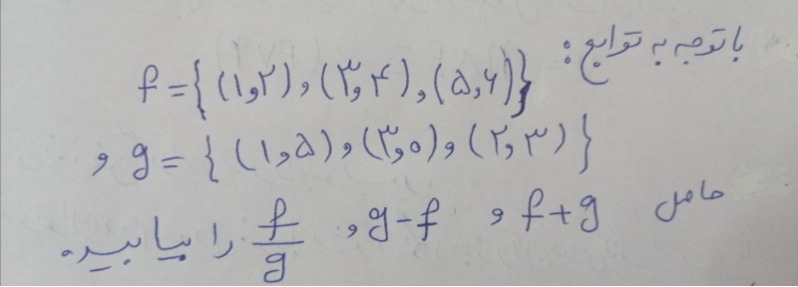 با توجه به توابع :
f = { (۱,۲) , (۳,۴) , (۵,۶) }
و g = { (۱,۵) , (۳,۰) , (۲,۳) }
حاصل f+g و g-f و f/g را بیابید.